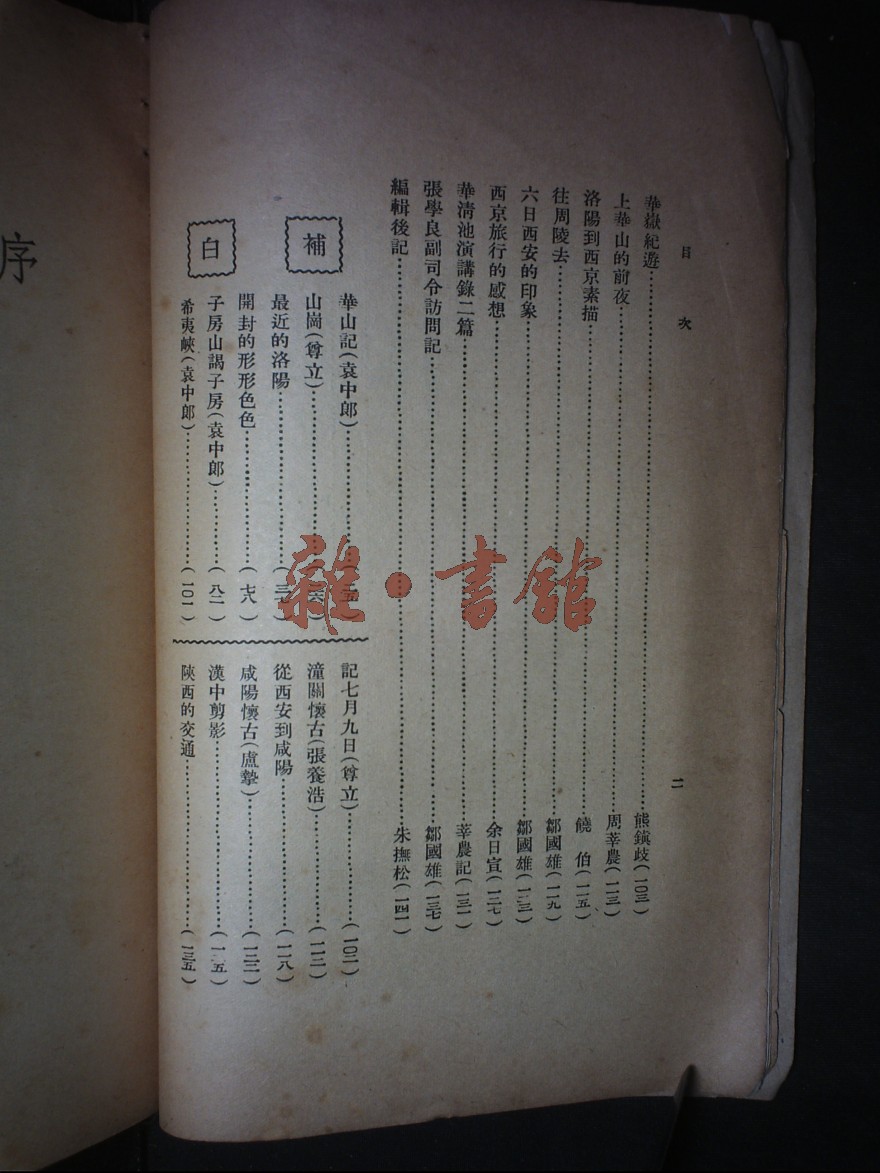 目次
二
華嶽紀遊……熊鎭歧(一〇三)
上華山的前夜……周莘農(一一三)
洛陽到西京素描……饒伯(一一五)
往周陵去……鄒國雄(一一九)
六日西安的印象……鄒國雄(一二三)
西京旅行的感想……余日宣(一二七)
華淸池演講錄二篇……莘農記(一三一)
張學良副司令訪問記……鄒國雄(一三七)
編輯後記……朱撫松(一四一)
補白
華山記(袁中郎)……
山崗(尊立)……
最近的洛陽……
開封的形形色色……(七八)
子房山謁子房(袁中郎)……(八二)
希夷峽(袁中郎)……(一〇一)
記七月九日(尊立)……(一〇二)
潼關懷古(張養浩)……(一一二)
從西安到咸陽……(一一八)
咸陽懷古(盧摯)……(一二二)
漢中剪影……
陝西的交通……(一三五)
序
雜·書館